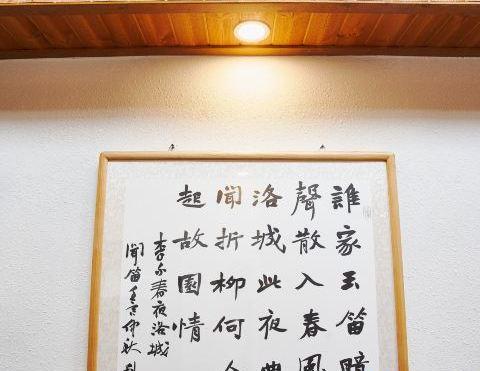 誰家玉笛暗
聲散入春風
洛城此夜曲
聞折柳何人
起故園情
李白春夜洛城
聞笛壬寅仲秋